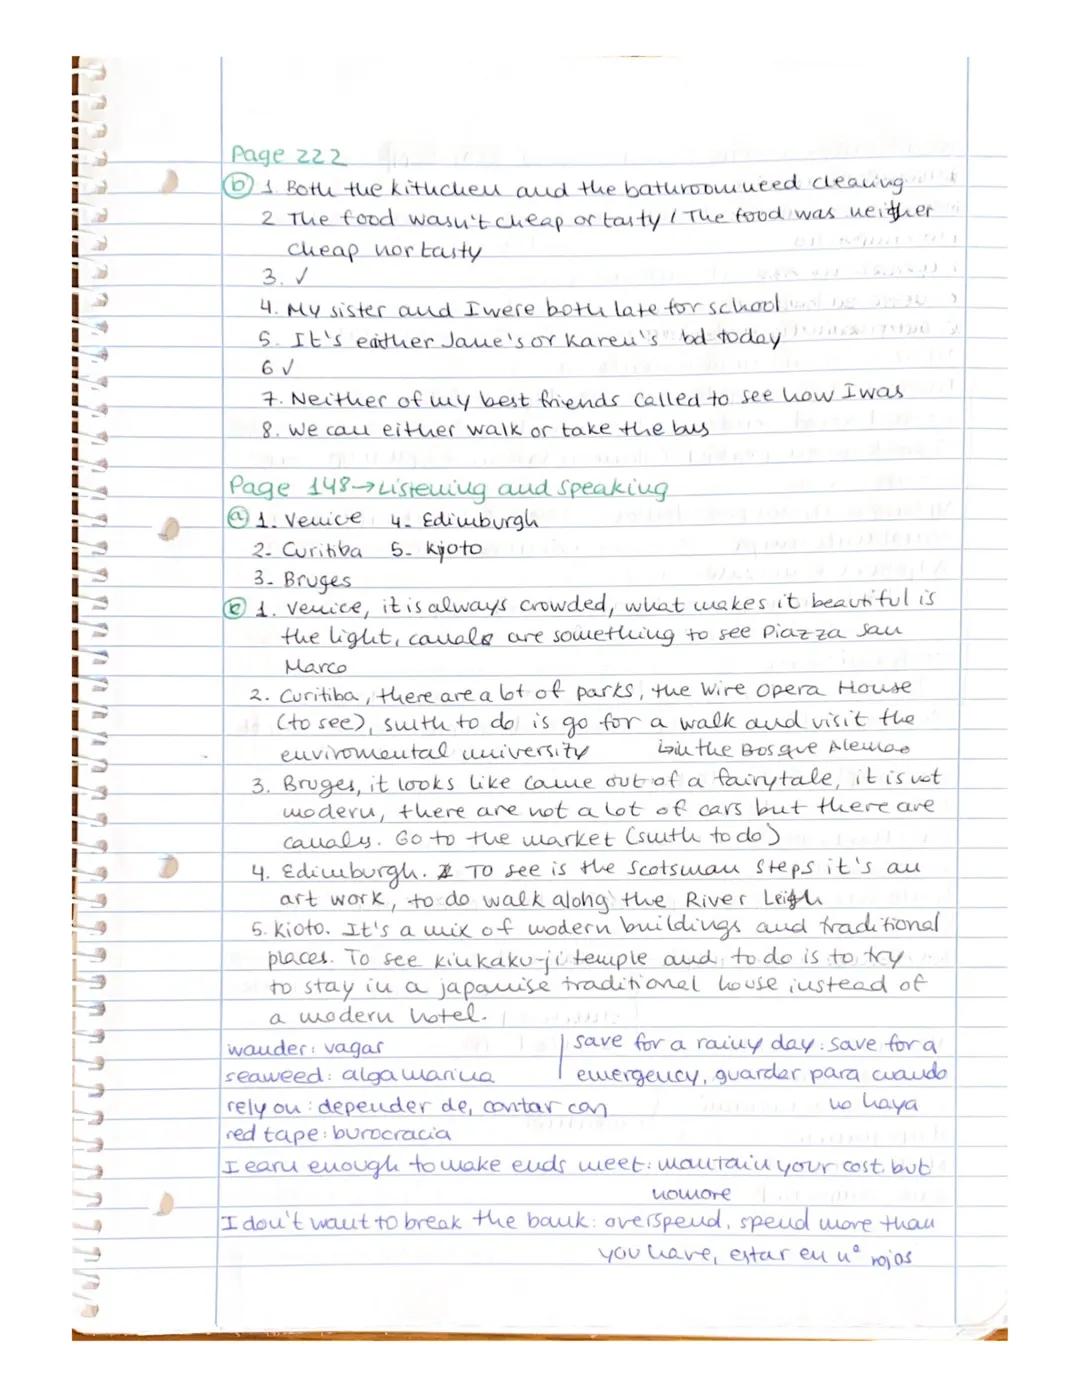 Page 222
b 1 Both the kituchen and the bathroom need cleaning
2 The food wasn't cheap or tasty / The food was neither
cheap nor tasty
3. ✓
4. My sister and I were both late for school
5. It's either Jane's or Karen's bd today
6 ✓
7. Neither of my best friends called to see how I was
8. We can either walk or take the bus
Page 148→Listening and speaking
a 1. Venice 4. Edimburgh
2. Curitiba 5. Kjoto
3. Bruges
c 1. Venice, it is always crowded, what makes it beautiful is
the light, canals are something to see Piazza San
Marco
2. Curitiba, there are a lot of parks, the Wire Opera House
(to see), smth to do is go for a walk and visit the
enviromental university ↳in the Bosque Alemao
3. Bruges, it looks like came out of a fairytale, it is not
modern, there are not a lot of cars but there are
canals. Go to the market (smth to do)
4. Edimburgh. To see is the Scotsman Steps it's an
art work, to do walk along the River Leigh
5. Kioto. It's a mix of modern buildings and traditional
places. To see Kinkaku-ji temple and to do is to try
to stay in a japanise traditional house instead of
a modern hotel.
wander: vagar
save for a rainy day: save for a
seaweed: alga marina
emergency, guardar para cuando
rely on: depender de, contar con
no haya
red tape: burocracia
I earn enough to make ends meet: mantain your cost but
nomore
I don't want to break the bank: overspend, spend more than
you have, estar en nº rojos